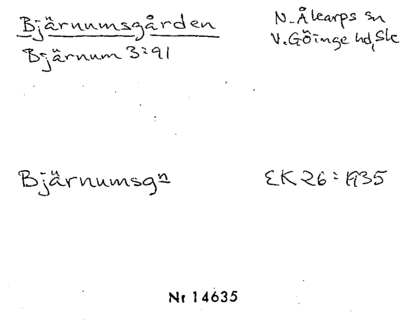 Bjärnumsgården N. Åkarps sn
Bjärnum 3:91 V. Göinge hd, Sk
Bjärnumsgn EK 26:1935
Nr 14635